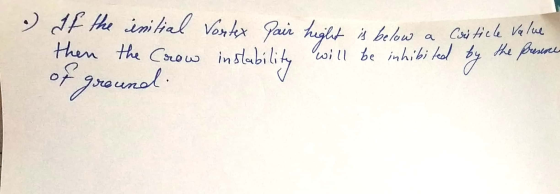 •) If the initial Vortex Pair hight is below a Criticle Value
then the Crow instability will be inhibited by the Presence
of ground.